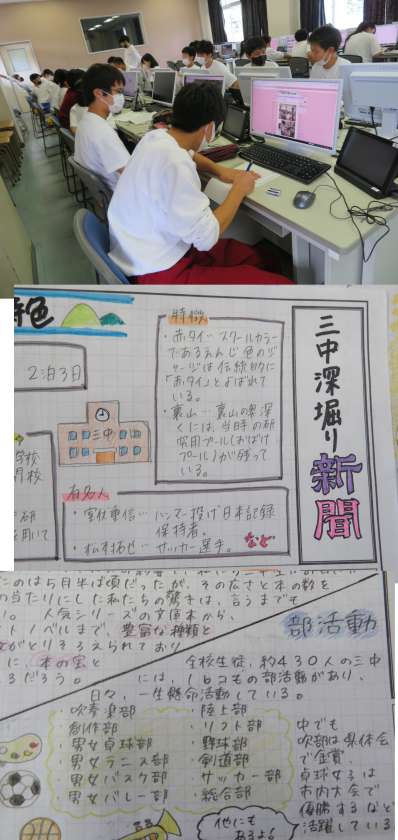 三中深堀り新聞
特徴
・赤タイ… スクールカラー
であるえんじ色のジ
ャージは伝統的に
「赤タイ」とよばれて
いる。
・裏山… 裏山の奥深
くには、当時の研
究用プール(おばけ
プール)が残って
いる。
色
2泊3日
三中
学校
有名人
・室伏重信… ハンマー投げ日本記録
保持者。
・松本拓也… サッカー選手。
など
のは5月半ば頃だったが、その広さと本の数を
の当たりにした私たちの驚きは、言うまでも
い。人気シリーズの文庫本から、
ノベルまで、豊富な種類と
がとりそろえられており
に、本の虫と
るだろう。
部活動
全校生徒、約430人の三中
には、16コもの部活動があり、
日々、一生懸命活動している。
・吹奏楽部
・創作部
・男女卓球部
・男女テニス部
・男女バスケ部
・男女バレー部
・陸上部
・リフト部
・野球部
・剣道部
・サッカー部
・総合部
中でも
吹部は県体会
で金賞、
卓球女子は
市内大会で
優勝するなど
活躍している
他にも
あるよ